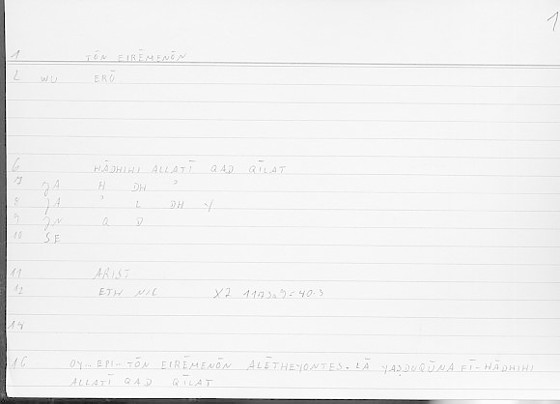 1
1 TŌN EIRĒMENŌN
2 WU ERŌ
6 HĀDHIHI ALLATĪ QAD QĪLAT
7 JA H DH ʾ
8 JA ʾ L DH Y
9 JN Q D
10 SE
11 ARIST
12 ETH NIC X7 1178a9=40.3
14
16 OY-EPI-TŌN EIRĒMENŌN ALĒTHEYONTES-LĀ YAṢDUQŪNA FĪ-HĀDHIHI
ALLATĪ QAD QĪLAT